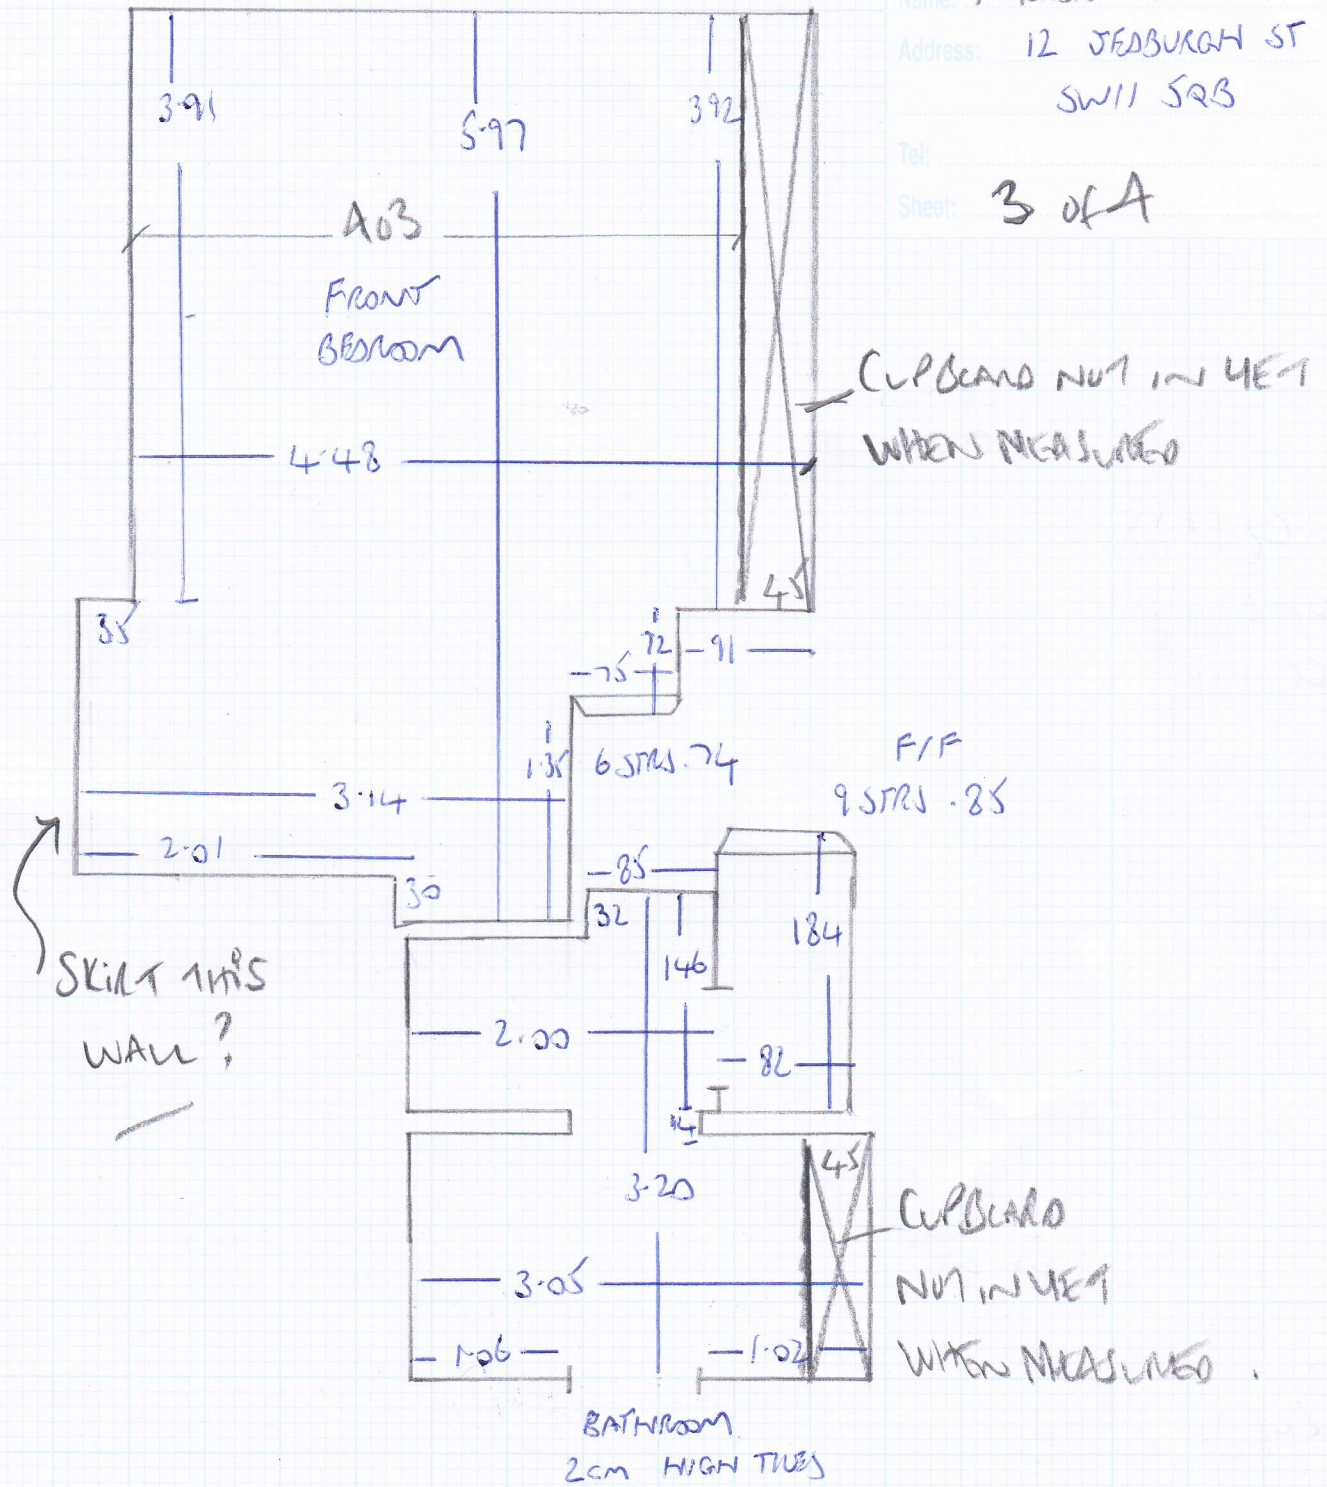 Name:
Address: 12 JEDBURGH ST
SW11 5QB
Tel:
Sheet: 3 of 4
3.91
5.97
3.92
4.03
FRONT
BEDROOM
CUPBOARD NOT IN YET
WHEN MEASURED
4.48
45
35
72
91
75
1.35
6 STRS .74
F/F
9 STRS .85
3.14
2.01
30
85
32
184
146
SKIRT THIS
WALL?
2.00
82
14
3.20
45
CUPBOARD
NOT IN YET
WHEN MEASURED.
3.05
1.06
1.02
BATHROOM
2cm HIGH TILES